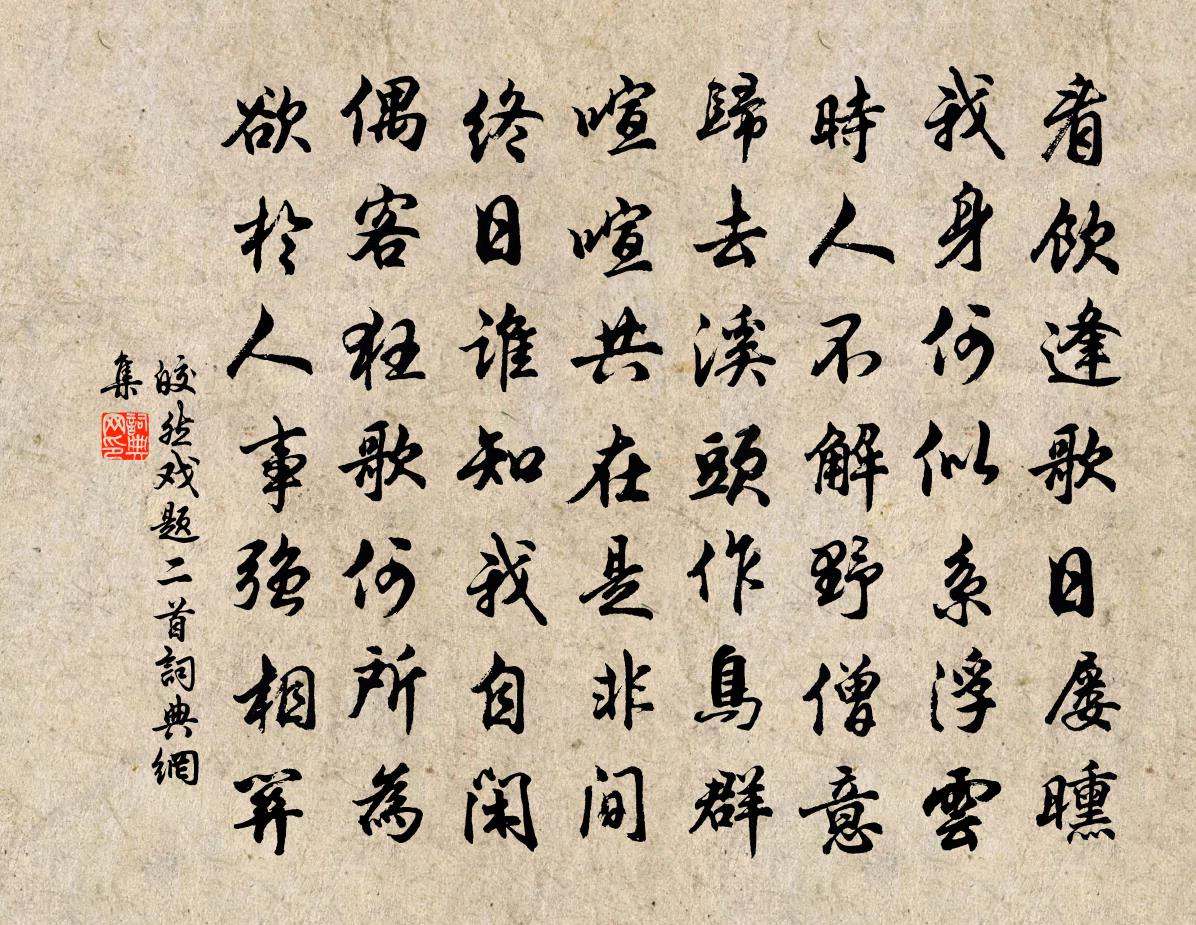 看饮逢歌日屡曛
我身何似系浮雲
時人不解野僧意
歸去溪頭作鳥群
喧喧共在是非间
终日谁知我自闲
偶客狂歌何所為
欲於人事强相关
皎然戏题二首詞典網
集
詞典
网印